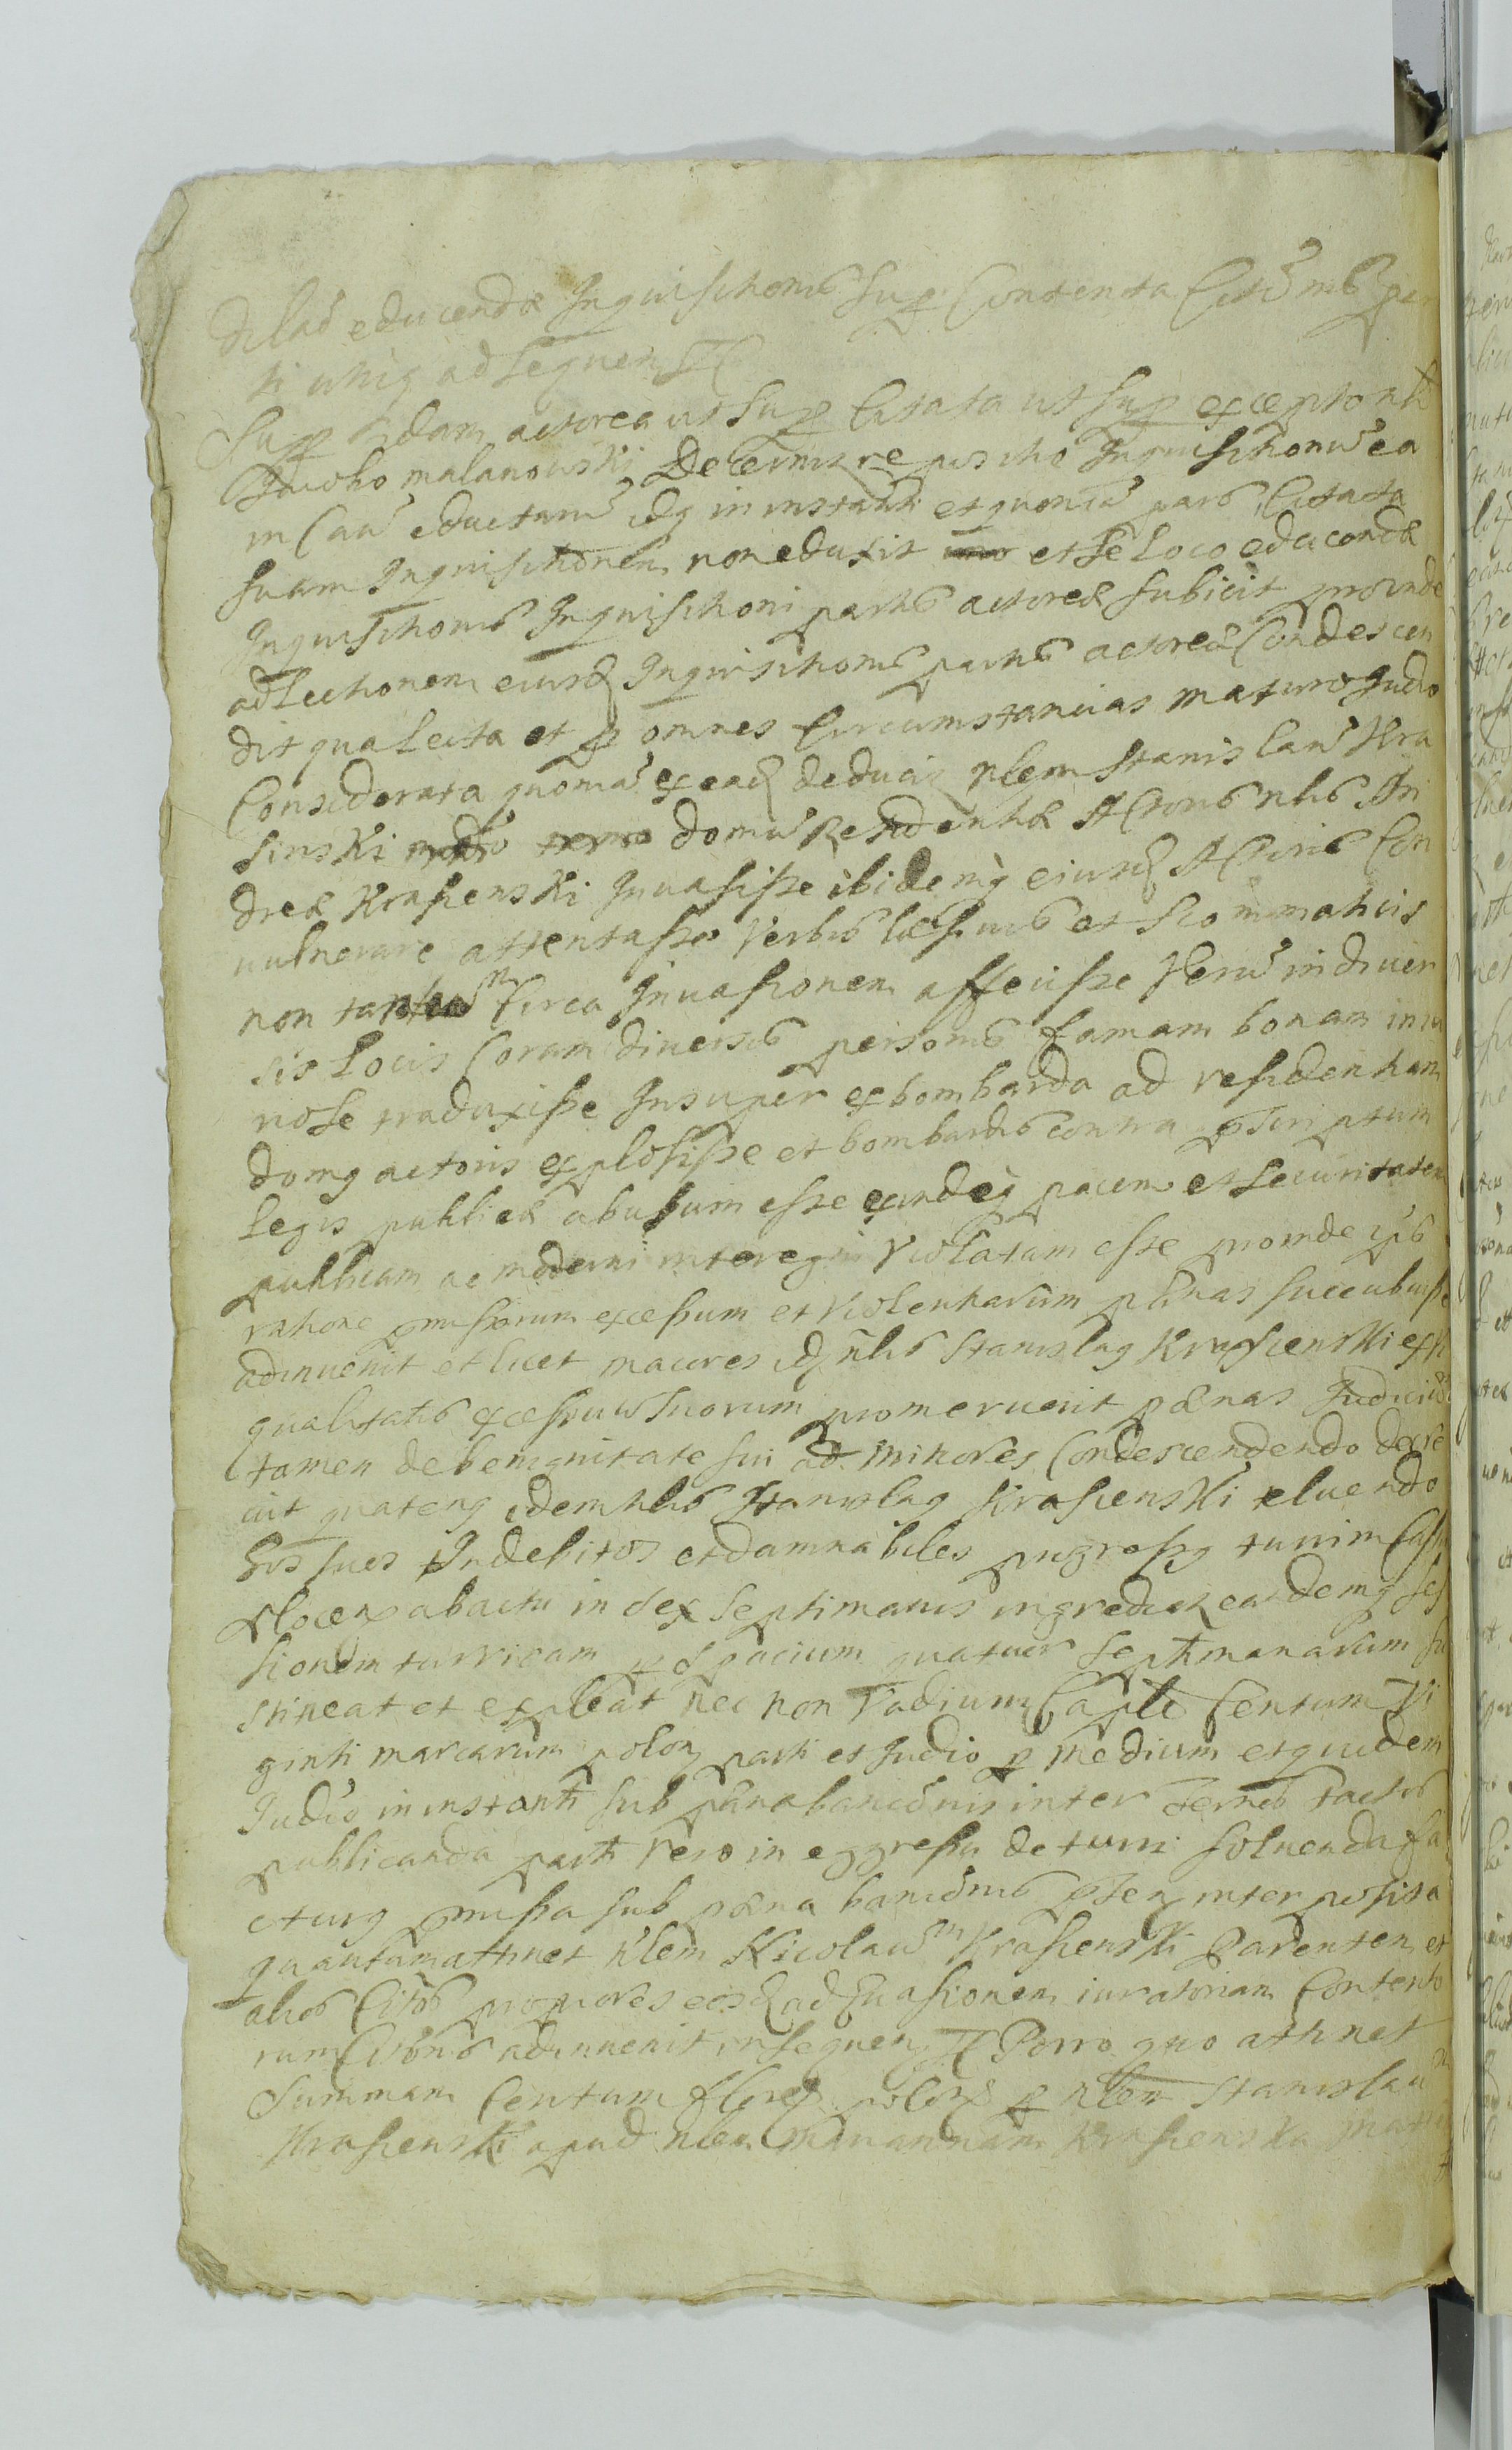 educendæ Inquisitionis Sup Contenta
ti utriq ad sequen
Sup actorea ut Sup Citata ut Sup excepto
Jacobo malanowski Decernit repositio Inquisitionũ ea
in eductarũ idq in instanti et quoniã pars Citata
suam Inquisitionem non eduxit et se Loco educendæ
Inquisitionis Inquisitioni partis actoreæ subiicit proinde
ad Lectionem eiusd Inquisitionis partis actoreæ Condescen
dit qua Lecta et p omnes Circumstancias maturo Judio
Considerata quoniã ex ead deducit nlem Stanislaũ Kra
sinski domũ Residentiæ Actoris nlis An
dreæ Krasienski Inuasisse ibidemq eiusd Actoris Con
uulnerare attentasse Verbis læsiuis et Scommaticis
non tantum Circa Inuasionem affecisse Verũ in diuer
sis Locis Coram diuersis personis famam bonam iniu
riose traduxisse Insuper ex bombarda ad residentiam
domq actoris explosisse et bombardis contra pscriptum
Legis publicæ abusum esse eandeq pacem et securitatem
publicam ac moderni interegni Violatam esse proinde ipõ
ratione pmissorum excessum et Violentiarum pænas succubuisse
adinuenit et licet maiores idq nlis Stanislaq Krasienski ex
qualitatis excessuũ suorum promeruerit pænas Judiciũ
tamen de benignitate sui ad minores Condescendendo decre
uit quatenq idem nlis Stanislaq Krasienski eluendo
hos suos Indebitos et damnabiles progressq turrim Cast
Plocen ab actu in sex septimanis ingrediet eandemq ses
sionem turricam p Spacium quatuor septimanarum su
stineat et expleat nec non Vadium Caple Centum Vi
ginti marcarum polon parti et Judio p medium et quidem
Judio in instanti sub pæna banionis inter ternis tactis
publicanda parti vero in eggressu de turri soluenda fa
cturq pmissa sub pæna banionis psen interposita
quantum attinet Nlem Nicolaũm Krasienski Parentem et
alios Citos propiores eosd ad Euasionem iuratoriam Contento
rum Citonis adinuenit in sequen Porro quo attinet
Summam Centum floren polon p nlem Stanislaũ
Krasienski apud nlem Mariannam Krasienska